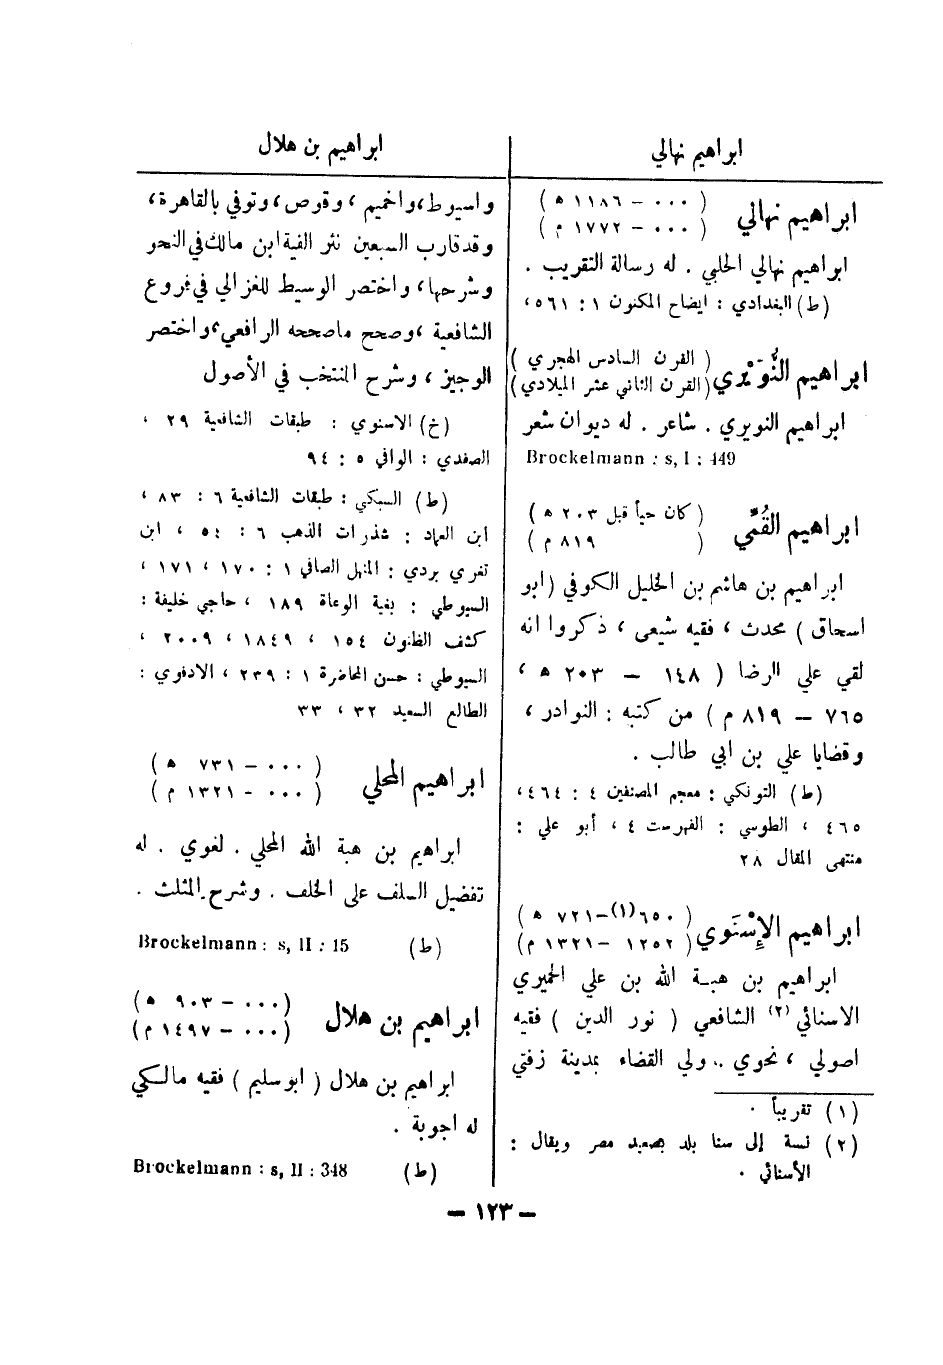 ابراهيم نهالي
ابراهيم نهالي
( ٠٠٠ – ١١٨٦ ه )
( ٠٠٠ – ١٧٧٢ م )
ابراهيم نهالي الحلبي . له رسالة التقريب .
(ط) البغدادي : ايضاح المكنون ١ : ٥٦١،
ابراهيم النُّوَيْري
( القرن السادس الهجري )
(القرن الثاني عشر الميلادي)
ابراهيم النويري . شاعر . له ديوان شعر
Brockelmann : s, I : 449
ابراهيم القُمّي
( كان حياً قبل ٢٠٣ ه )
( ٨١٩ م )
ابراهيم بن هاشم بن الخليل الكوفي (ابو
اسحاق ) محدث ، فقيه شيعي ، ذكروا انه
لقي علي الرضا ( ١٤٨ – ٢٠٣ ه ،
٧٦٥ – ٨١٩ م ) من كتبه : النوادر ،
وقضايا علي بن ابي طالب .
(ط) التونكي : معجم المصنفين ٤ : ٤٦٤،
٤٦٥ ، الطوسي : الفهرست ٤ ، أبو علي :
منتهى المقال ٢٨
ابراهيم الإسْنَوي
( ٦٥٠(١)–٧٢١ ه )
( ١٢٥٢ –١٣٢١ م)
ابراهيم بن هبة الله بن علي الحميري
الاسنائي (٢) الشافعي ( نور الدين ) فقيه
اصولي ، نحوي .. ولي القضاء بمدينة زفتي
(١) تقريباً .
(٢) نسة إلى سنا بلد بصعيد مصر ويقال :
الأسنائي .
ابراهيم بن هلال
واسيوط ، واخميم ، وقوص ، وتوفي بالقاهرة ،
وقد قارب السبعين نثر الفية ابن مالك في النحو
وشرحها ، واختصر الوسيط للغزالي في فروع
الشافعية ، وصحح ما صححه الرافعي ، واختصر
الوجيز ، وشرح المنتخب في الأصول
(خ) الاسنوي : طبقات الشافعية ٢٩ ،
الصفدي : الوافي ٥ : ٩٤
(ط) السبكي : طبقات الشافعية ٦ : ٨٣ ،
ابن العماد : شذرات الذهب ٦ : ٥٤ ، ابن
تغري بردي : المنهل الصافي ١ : ١٧٠ ، ١٧١ ،
السيوطي : بغية الوعاة ١٨٩ ، حاجي خليفة :
كشف الظنون ١٥٤ ، ١٨٤٩ ، ٢٠٠٩ ،
السيوطي : حسن المحاضرة ١ : ٢٣٩ ، الادفوي :
الطالع السعيد ٣٢ ، ٣٣
ابراهيم المحلي
( ٠٠٠ – ٧٣١ ه )
( ٠٠٠ – ١٣٢١ م )
ابراهيم بن هبة الله المحلي . لغوي . له
تفضيل السلف على الخلف . وشرح المثلث .
(ط) Brockelmann : s, II : 15
ابراهيم بن هلال
(٠٠٠ – ٩٠٣ ه )
(٠٠٠ – ١٤٩٧ م)
ابراهيم بن هلال ( ابو سليم ) فقيه مالكي
له اجوبة .
(ط) Brockelmann : s, II : 348
– ١٢٣ –